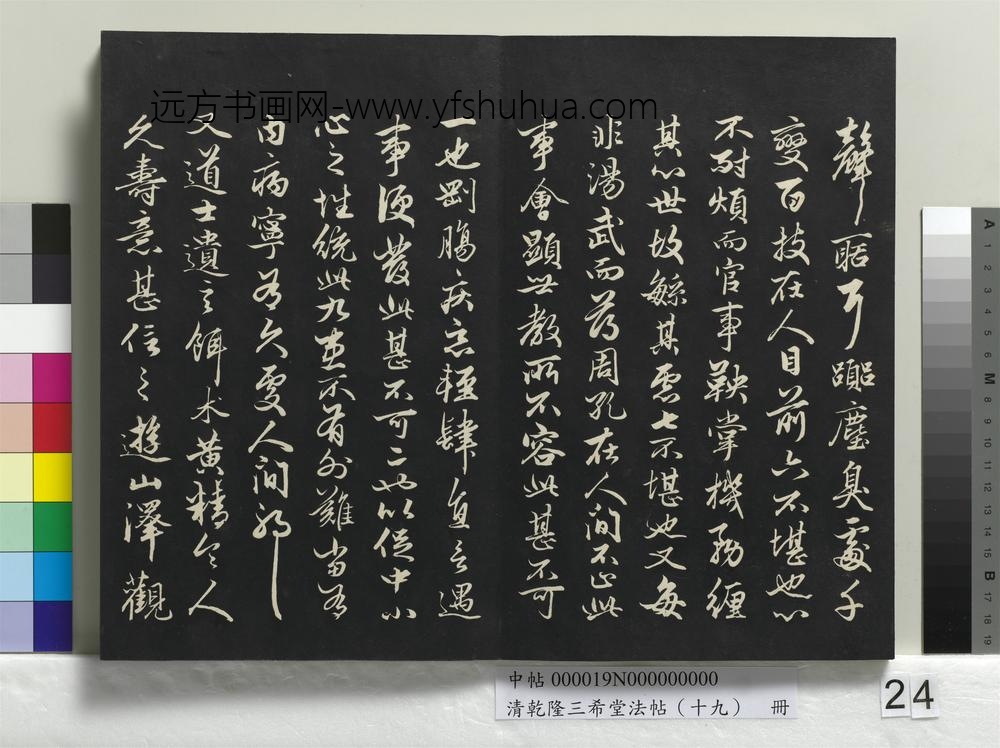 聲聒耳囂塵臭處千
變百技在人目前六不堪也心
不耐煩而官事鞅掌機務纏
其心世故繁其慮七不堪也又每
非湯武而薄周孔在人間不止此
事會顯世教所不容此甚不可
一也剛腸疾惡輕肆直言遇
事便發此甚不可二也以促中小
心之性統此九患不有外難當有
內病寧可久處人間邪
又道士遺言餌朮黃精令人
久壽意甚信之遊山澤觀
远方书画网-www.yfshuhua.com
中帖 000019N000000000
清乾隆三希堂法帖（十九） 冊
24
A 1 2 3 4 5 6 M 8 9 10 11 12 13 14 15 B 17 18 19